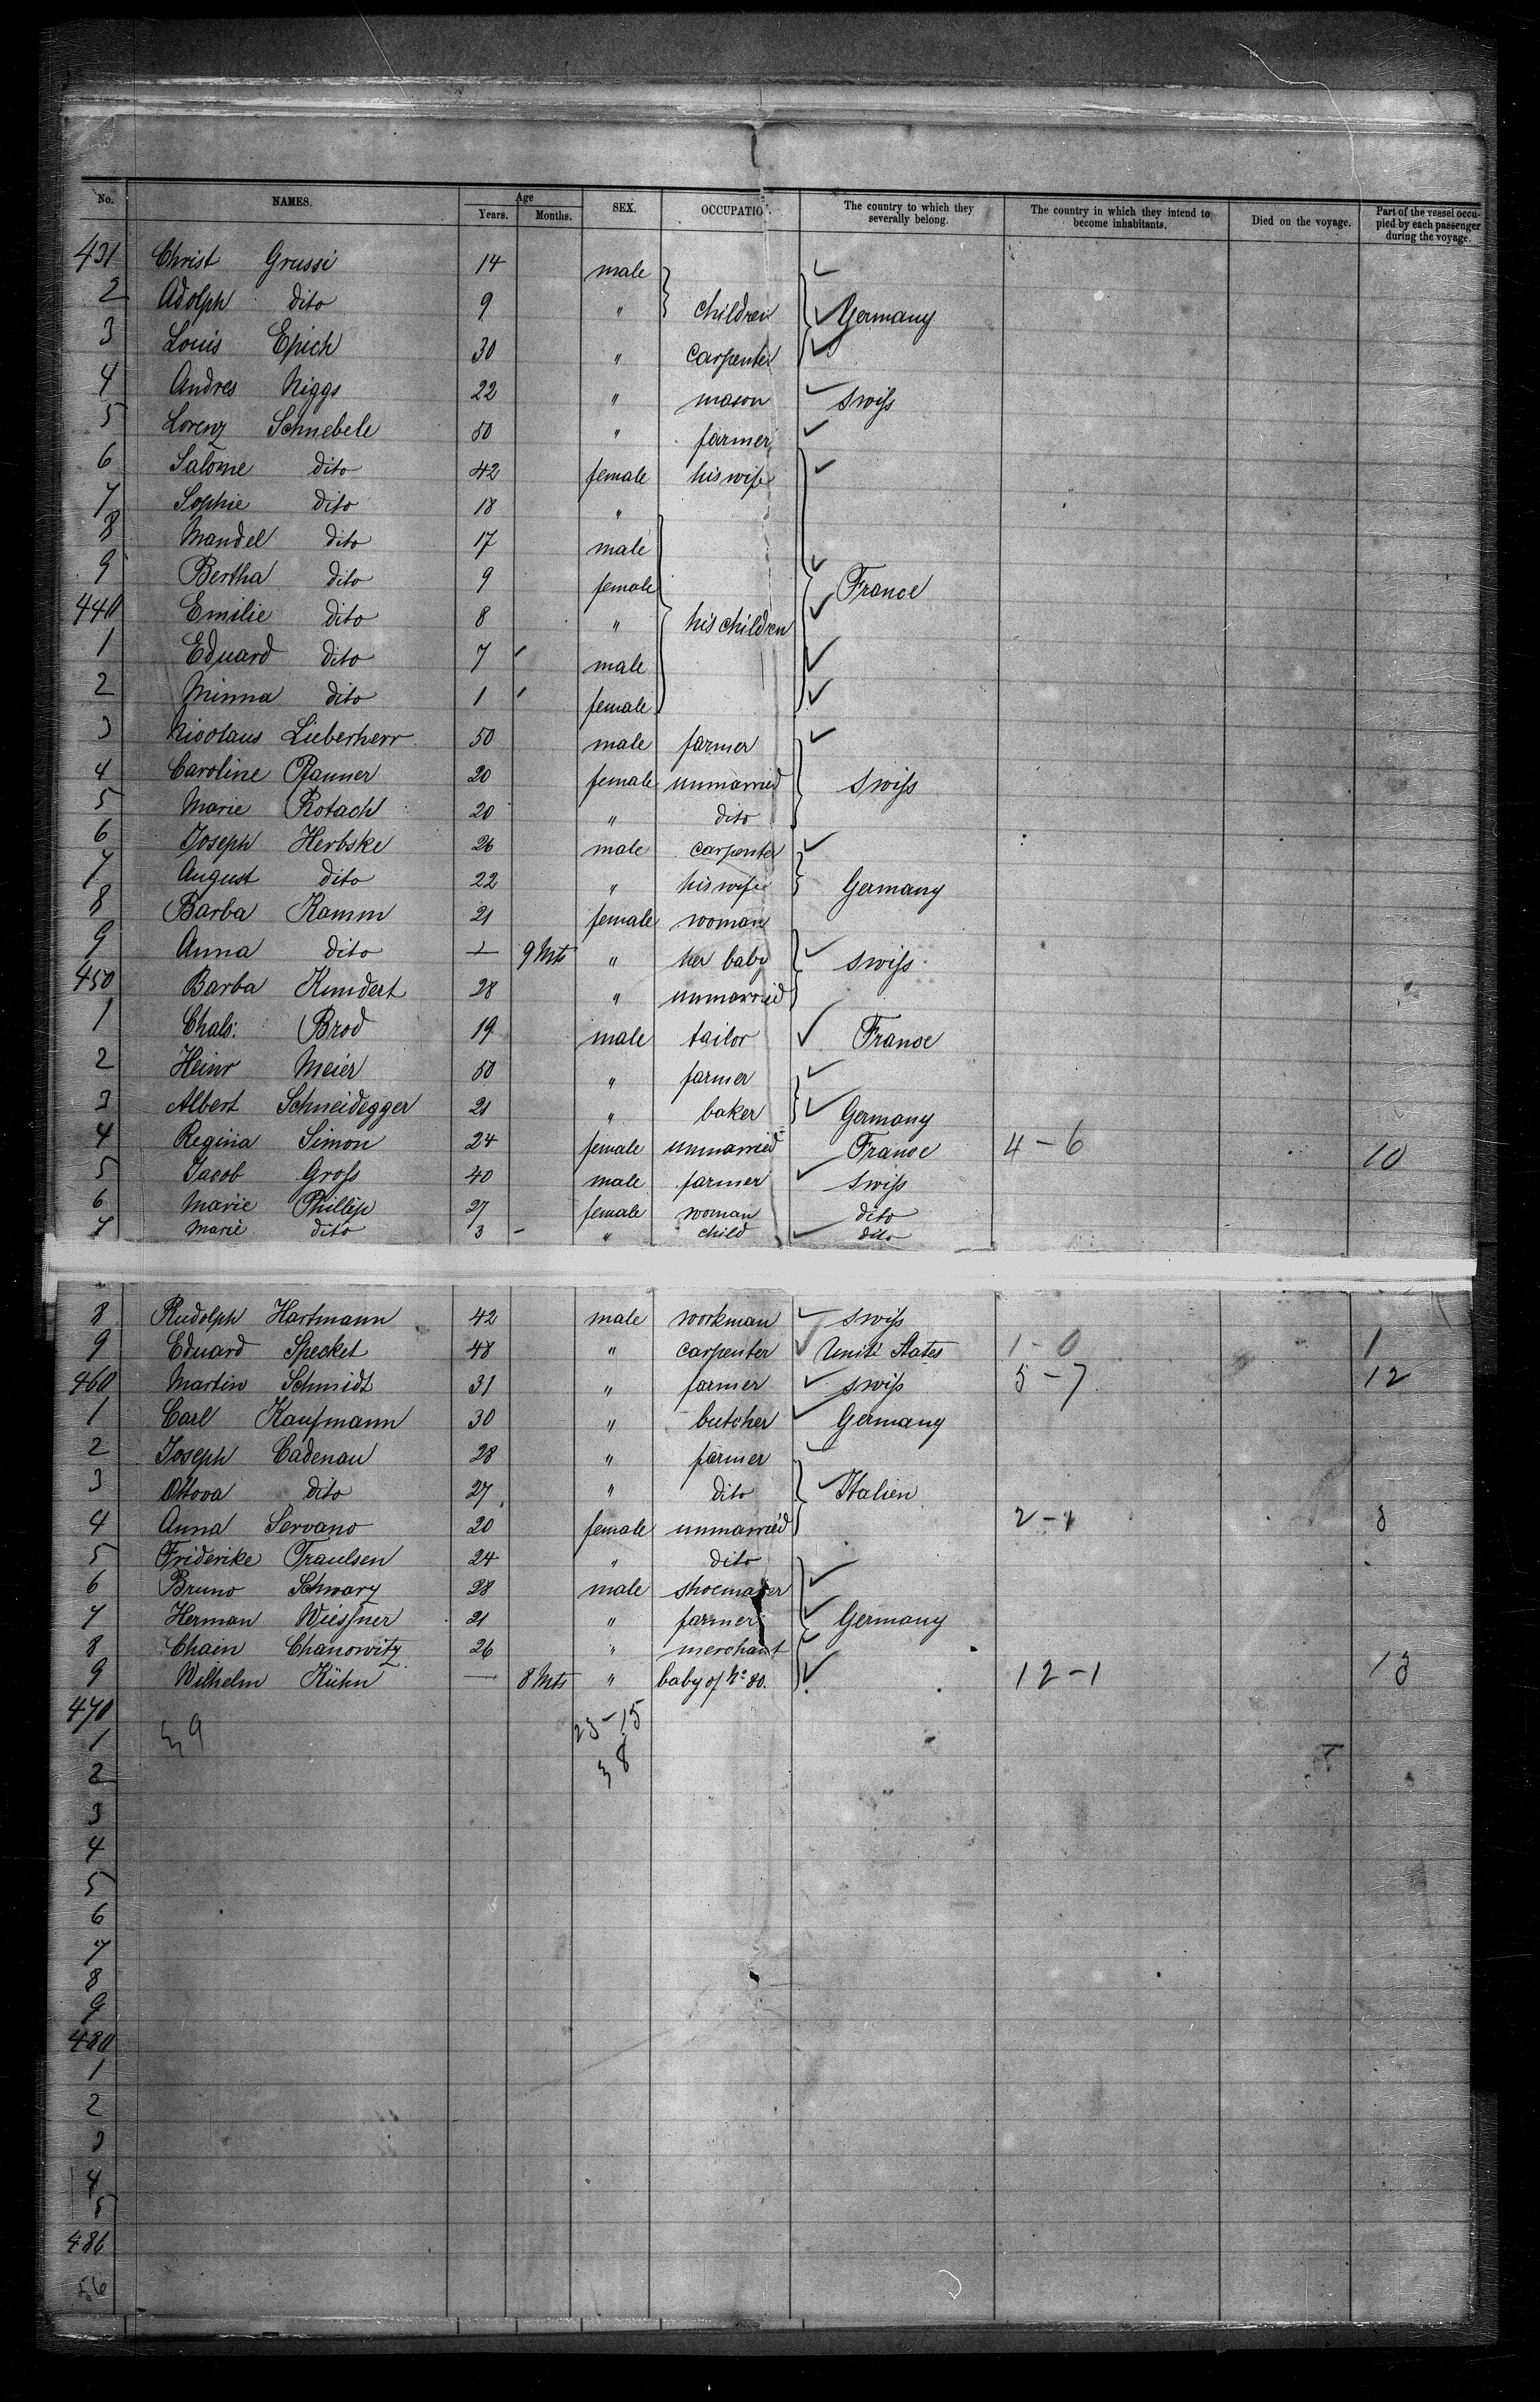 No. NAMES. Age Years. Months. SEX. OCCUPATIO . The country to which they severally belong. The country in which they intend to become inhabitants. Died on the voyage. Part of the vessel occupied by each passenger during the voyage.
431 Christ Grussi 14 male
2 Adolph dito 9 " children Germany
3 Louis Epich 30 " carpenter
4 Andres Niggs 22 " mason Swiss
5 Lorenz Schnebele 50 " farmer
6 Salome dito 42 female his wife
7 Sophie dito 18 "
8 Mandel dito 17 male
9 Bertha dito 9 female France
440 Emilie dito 8 " his children
1 Eduard dito 7 male
2 Minna dito 1 female
3 Nicolaus Lieberherr 50 male farmer
4 Caroline Pfanner 20 female unmarried Swiss
5 Marie Rotach 20 " dito
6 Joseph Herbske 26 male carpenter
7 August dito 22 " his wife Germany
8 Barba Kamm 21 female woman
9 Anna dito — 9 Mts " her baby Swiss
450 Barba Kundert 28 " unmarried
1 Chals: Brod 19 male tailor France
2 Heinr Meier 50 " farmer
3 Albert Schneidegger 21 " baker Germany
4 Regina Simon 24 female unmarried France 4 - 6 10
5 Jacob Gross 40 male farmer Swiss
6 Marie Phillip 27 female woman dito
7 Marie dito 3 " child dito
8 Rudolph Hartmann 42 male workman Swiss
9 Eduard Specket 48 " carpenter Unite States 1 - 0 1
460 Martin Schmidt 31 " farmer Swiss 5 - 7 12
1 Carl Kaufmann 30 " butcher Germany
2 Joseph Cadenau 28 " farmer
3 Ottova dito 27 " dito Italien
4 Anna Servano 20 female unmarried 2 - 1 3
5 Friderike Traulsen 24 " dito
6 Bruno Schwarz 28 male shoemaker
7 Herman Wiessner 21 " farmer Germany
8 Chain Chanowitz 26 " merchant
9 Wilhelm Kühn — 8 Mts " baby of No 80. 12 - 1 13
470 39 23 - 15
1
2 38
3
4
5
6
7
8
9
480
1
2
3
4
5
486
56